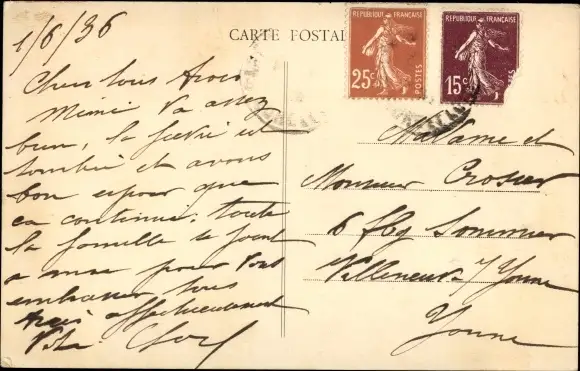 CARTE POSTALE
REPUBLIQUE FRANÇAISE
25c
POSTES
REPUBLIQUE FRANÇAISE
15c
1/6/36
Chers tous trois
Mimi va assez
bien, la fièvre est
tombée et avons
bon espoir que
ca continue. toute
la famille se joint
a pour vous
embrasser tous
trois affectueusement
Madame et
Monsieur Crosier
6 fbg
Villeneuve s/ Yonne
Yonne